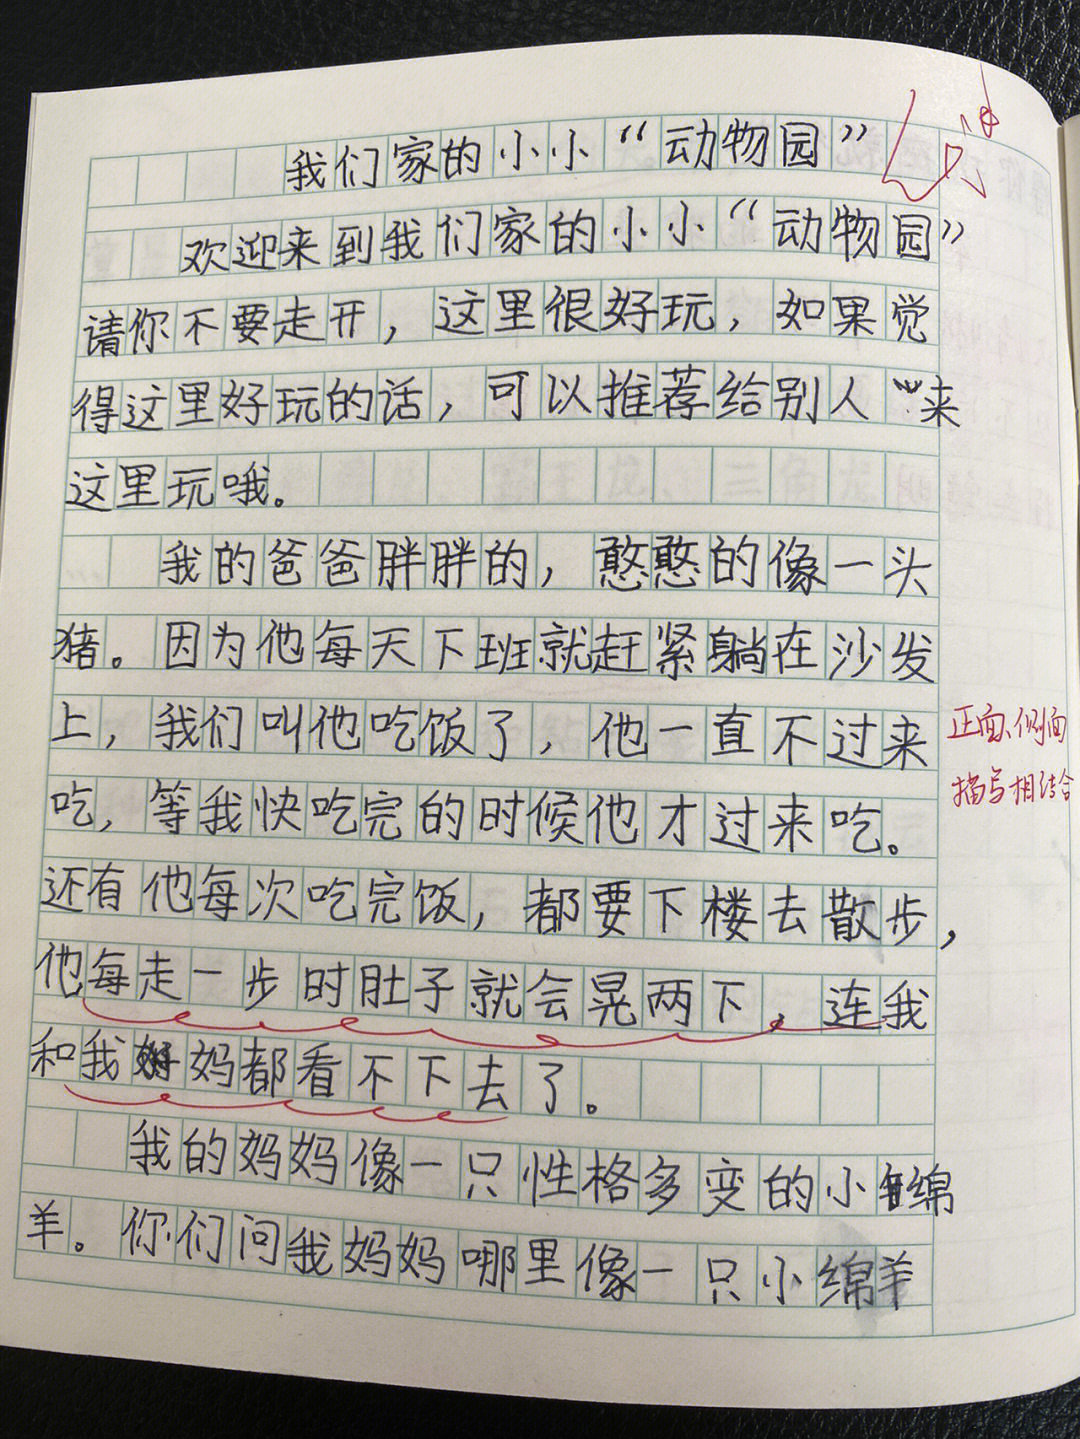 我们家的小小“动物园”
欢迎来到我们家的小小“动物园”
请你不要走开，这里很好玩，如果觉
得这里好玩的话，可以推荐给别人来
这里玩哦。
我的爸爸胖胖的，憨憨的像一头
猪。因为他每天下班就赶紧躺在沙发
上，我们叫他吃饭了，他一直不过来
吃，等我快吃完的时候他才过来吃。
还有他每次吃完饭，都要下楼去散步，
他每走一步时肚子就会晃两下，连我
和我妈都看不下去了。
我的妈妈像一只性格多变的小绵
羊。你们问我妈妈哪里像一只小绵羊
正面、侧面
描写相结合